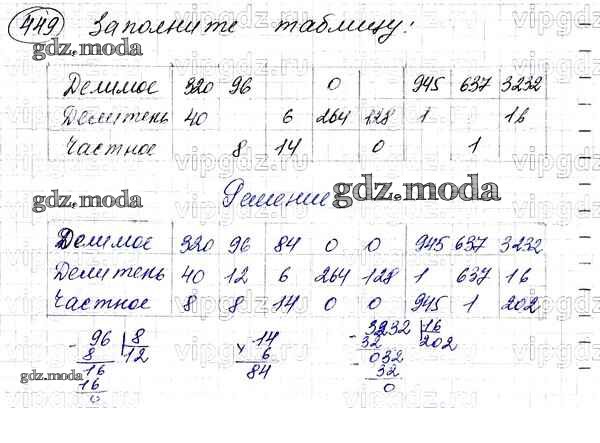 449 Заполните таблицу:
gdz.moda
Делимое 320 96 0 945 637 3232
Делитель 40 6 264 128 1 16
Частное 8 14 0 1
gdz.moda Решение gdz.moda
Делимое 320 96 84 0 0 945 637 3232
Делитель 40 12 6 264 128 1 637 16
Частное 8 8 14 0 0 945 1 202
- 96 8
8 12
16
16
0
gdz.moda
× 14
6
84
- 3232 16
32 202
- 032
32
0
vipgdz.ru